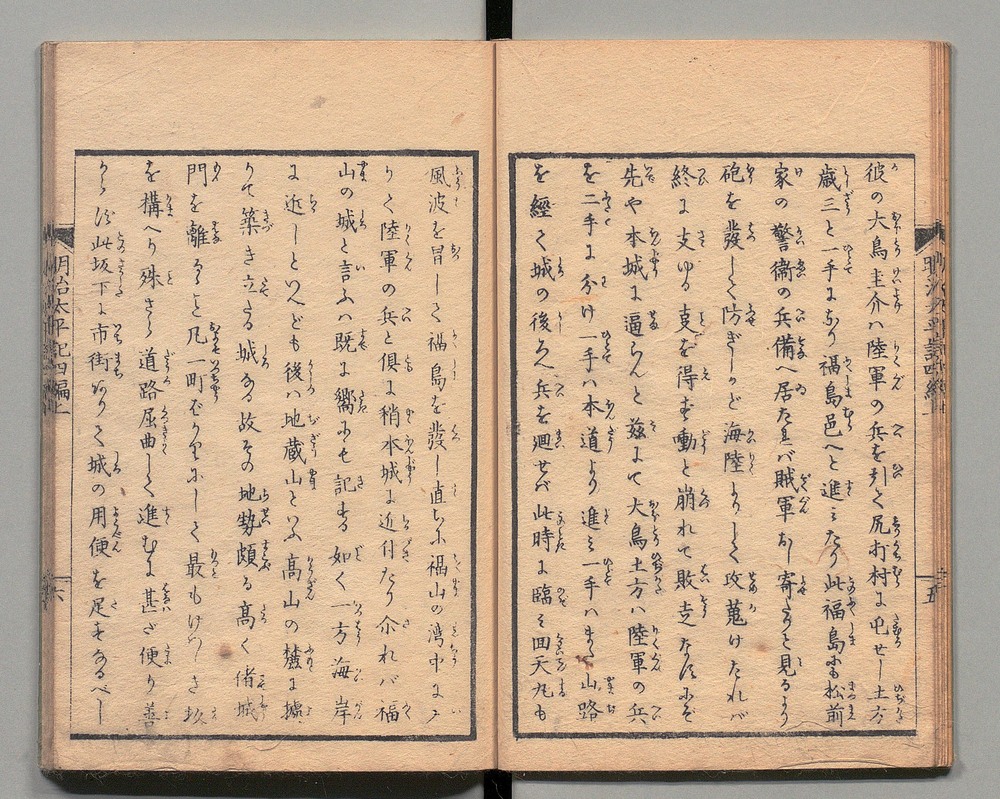 彼の大鳥圭介ハ陸軍の兵を引て尻打村に屯せし土方
歳三と一手になり福島邑へと進みたり此福島にも松前
家の警衛の兵備へ居たれバ賊軍おし寄たりと見るより
砲を發して防ぎしかど海陸よりして攻蒐けたれバ
終に支ゆる支を得ず動と崩れて敗走なすにぞ
先や本城に逼らんと茲にて大鳥土方ハ陸軍の兵
を二手に分け一手ハ本道より進み一手ハまた山路
を經て城の後ろへ兵を廻せバ此時に臨み回天丸も
風波を冒して福島を發し直ちに福山の湾中に入
りて陸軍の兵と倶に稍本城に近付たり尓れバ福
山の城と言ふハ既に嚮にも記する如く一方海岸
に近しといへども後ハ地蔵山といふ高山の麓に據
りて築き立たる城なる故その地勢頗る高く偖城
門を離るゝ支凡一町ばかりにして最もけハしき坂
を構へり殊さら道路屈曲して進むに甚だ便り善
らず此坂下に市街ありて城の用便を足すなるべし
明治太平記四編上
六
五